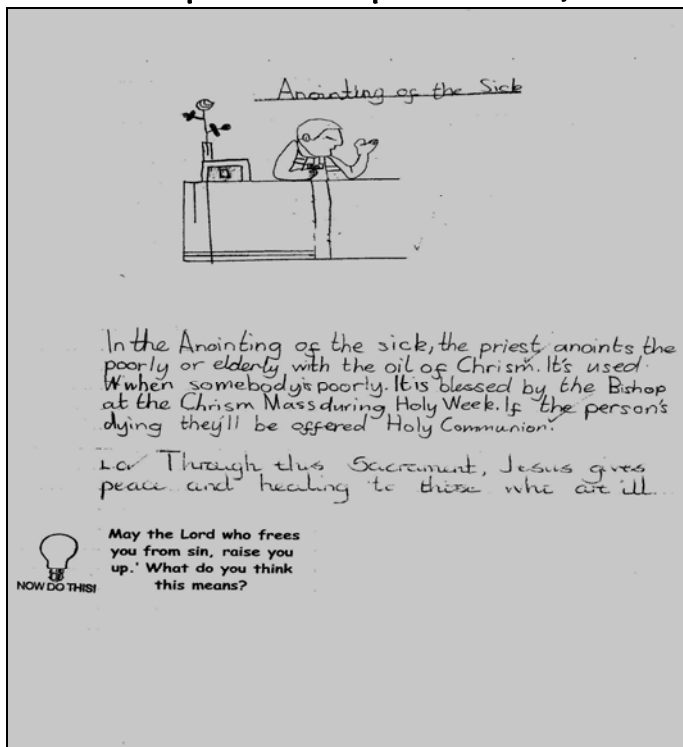 Anointing of the Sick
In the Anointing of the sick, the priest anoints the
poorly or elderly with the oil of Chrism. It's used
when somebody's poorly. It is blessed by the Bishop
at the Chrism Mass during Holy Week. If the person's
dying they'll be offered Holy Communion.
Through this Sacrament, Jesus gives
peace and healing to those who are ill.
May the Lord who frees
you from sin, raise you
up.' What do you think
this means?
NOW DO THIS!